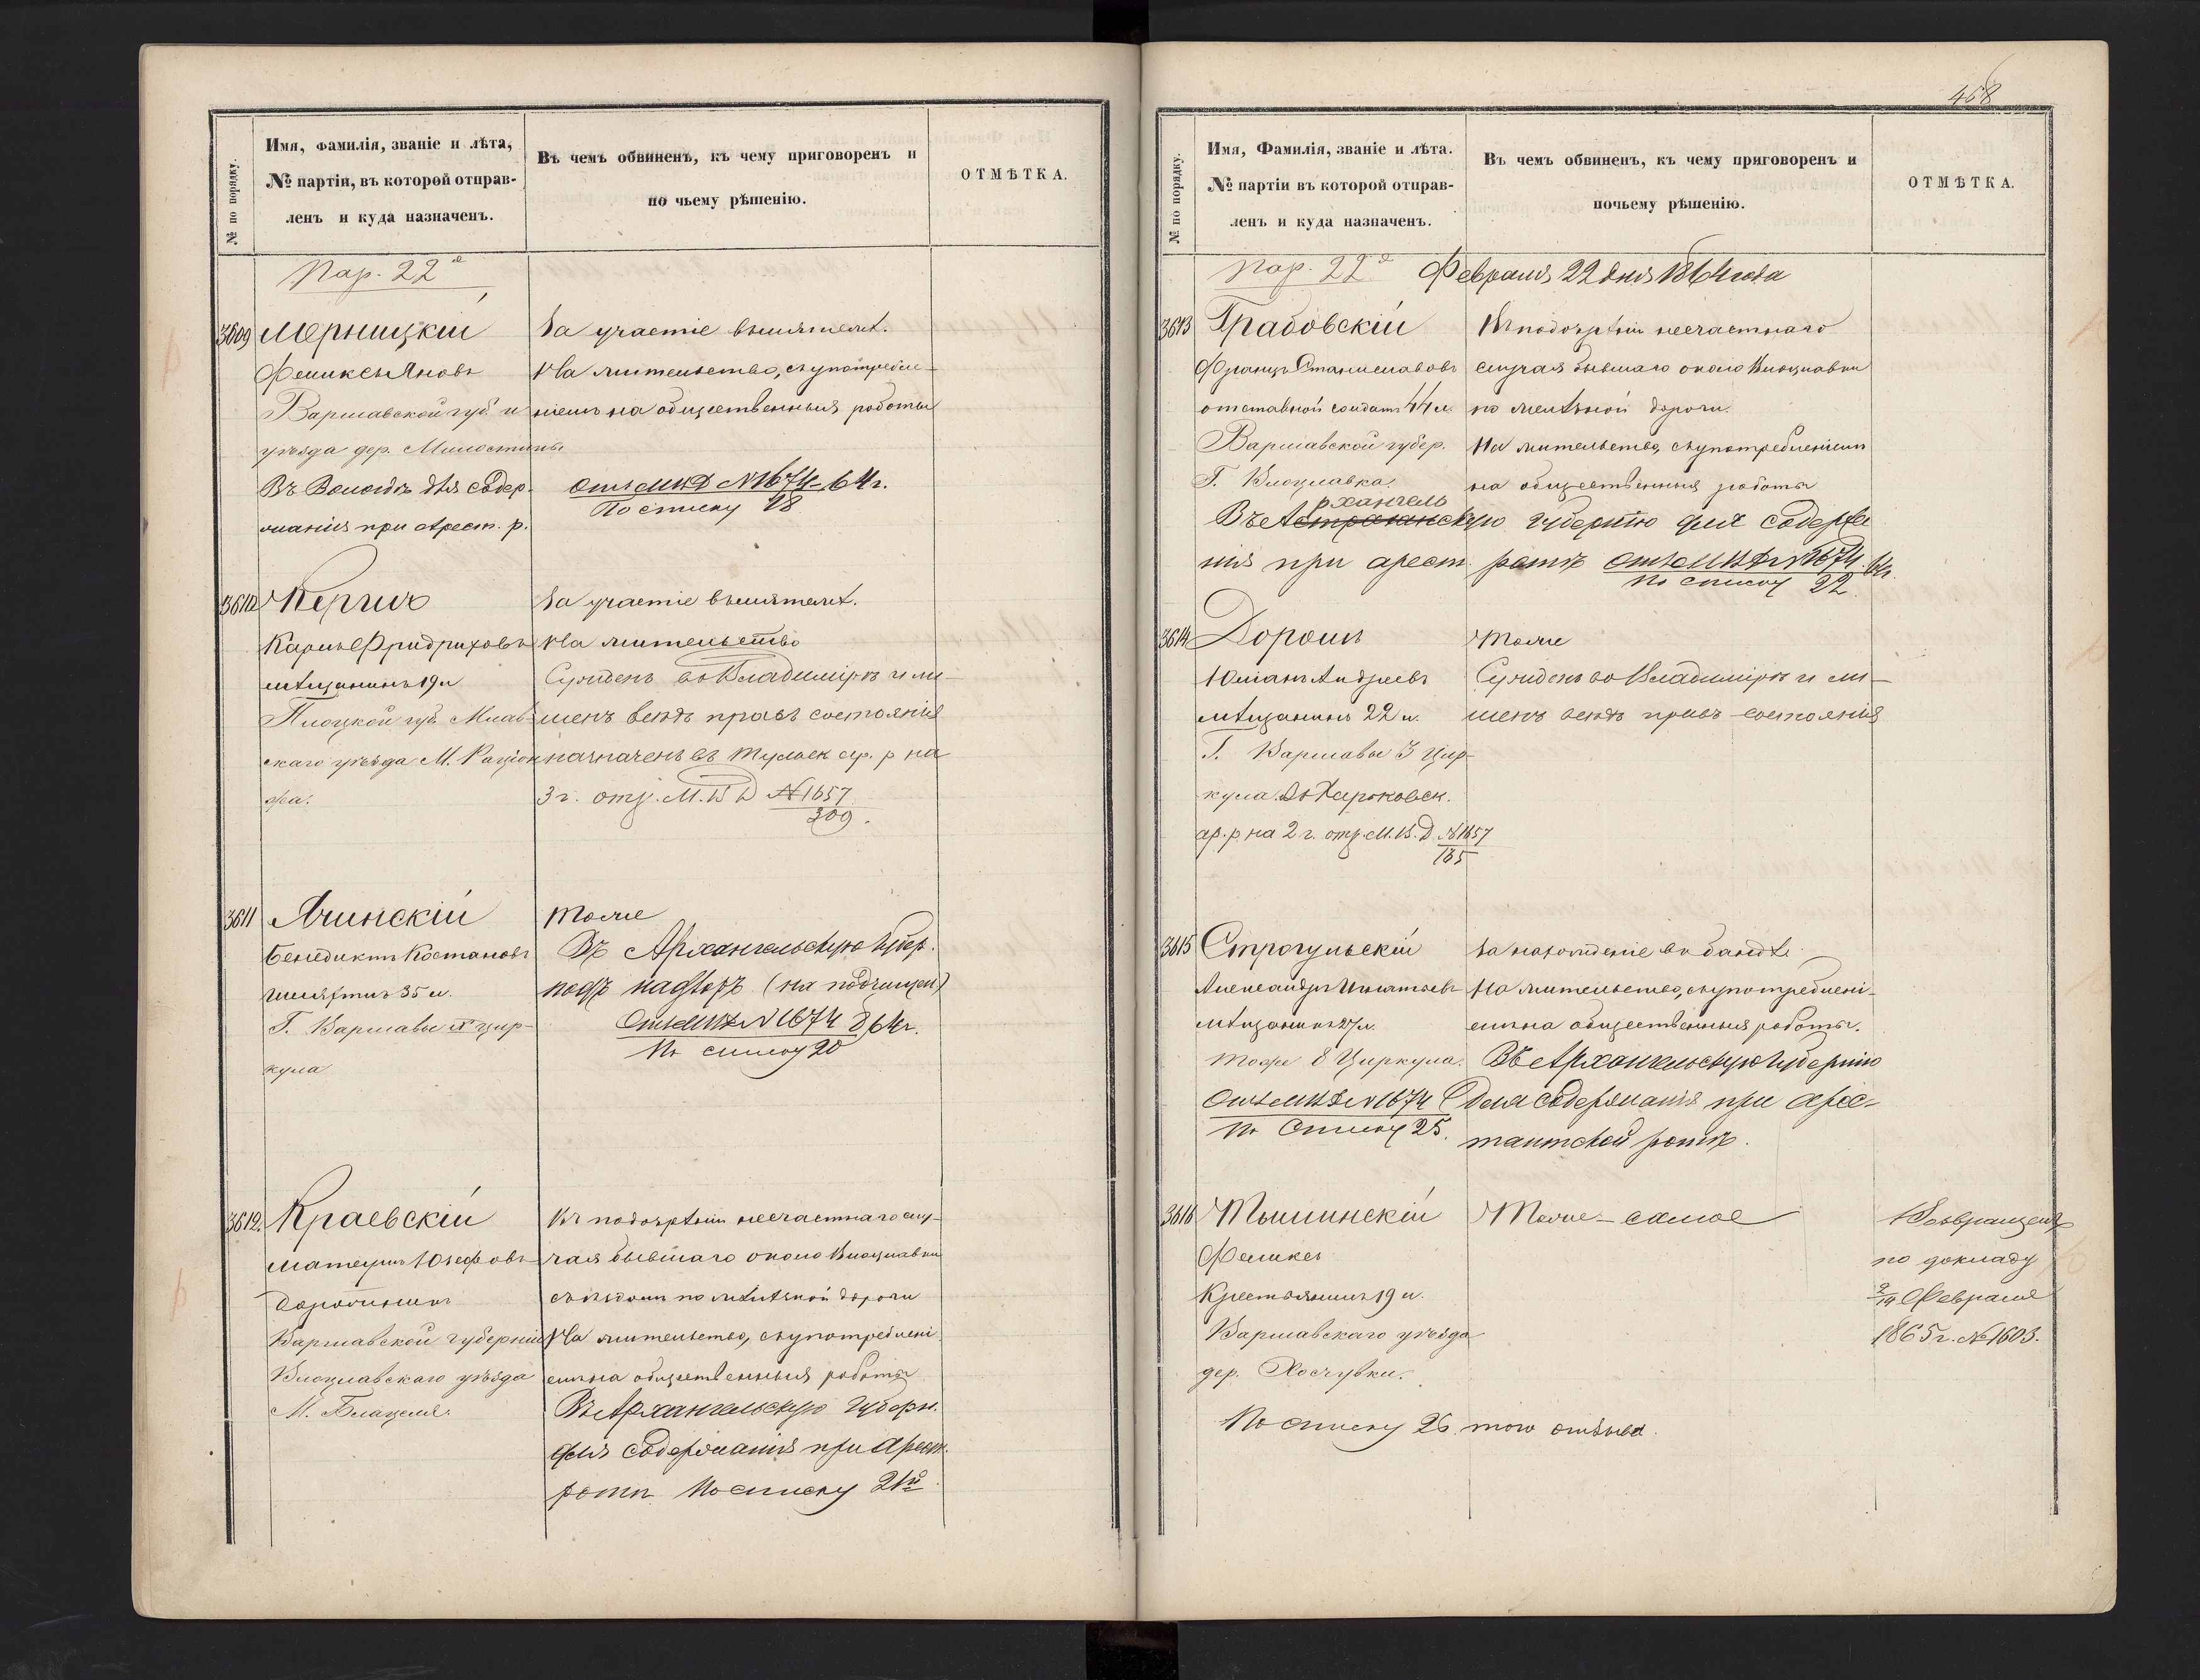 № по порядку.
Имя, фамилія, званіе и лѣта,
№ партіи, въ которой отправ-
ленъ и куда назначенъ.
Въ чемъ обвиненъ, къ чему приговоренъ и
по чьему рѣшенію.
ОТМѢТКА.
Пар. 22я
3609
Мерницкій
Феликсъ Яновъ
Варшавской губ. и
уѣзда дер. Милостины
Въ Вологдѣ для содер-
жанія при Арест. р.
За участіе въ мятежѣ.
На жительство, съ употребле-
ніемъ на общественныя работы
Отз. МВД №1674-64г.
По списку 18
3610
Карлъ Фридриховъ
мѣщанинъ 19 л
Плоцкой губ. Млав-
скаго уѣзда М. Раціон
жа.
За участіе въ мятежѣ.
На жительство
Сужденъ во Владимірѣ и ли-
шенъ всѣхъ правъ состоянія
назначенъ въ Тульск ар. р на
3 г. отз. М.В Д №1657
309.
3611
Ячинскій
Бенедиктъ Костановъ
шляхтичъ 35 л.
Г. Варшавы цир-
кула
Тоже
Въ Архангельскую Губер.
подъ надзоръ
Отз МВД №1674 64г.
По списку 20
3612.
Краевскій
Матеушъ Юзефовъ
Варшавской губерніи
Влоцлавскаго уѣзда
М.
Въ подозрѣніи несчастнаго слу-
чая бывшаго около Влоцлавки
съ поѣздомъ по желѣзной дороги
На жительство, съ употребленi-
емъ на общественныя работы
Въ Архангельскую Губерн.
для содержанія при Арест.
роты По списку 21й
468
№ по порядку.
Имя, Фамилія, званіе и лѣта.
№ партіи въ которой отправ-
ленъ и куда назначенъ.
Въ чемъ обвиненъ, къ чему приговоренъ и
почьему рѣшенію.
ОТМѢТКА.
Пар. 22я Февраля 22 дня 1864 года
3613
Грабовскій
Францъ Станиславовъ
отставной солдатъ 44 л.
Варшавской губер.
Г. Влоцлавка.
Въ подозрѣніи несчастнаго
случая бывшаго около Влоцлавки
по желѣзной дороги.
На жительство, съ употребленіемъ
на общественныя работы
рхангель
Въ Астраханскую губернію для содержа
нія при арест. ротѣ Отз МВД №1674 64г.
По списку 22.
3614
Дорошъ
Юліанъ Андреевъ
мѣщанинъ 22 л.
Г. Варшавы 3 Цир-
кула. Въ Харьковск.
ар. р на 2 г. отз. М.В.Д №1657
135
Тоже
Сужденъ во Владимірѣ и ли-
шенъ всѣхъ правъ состоянія
3615
Строгульскій
Александръ Игнатьевъ
мѣщанинъ 27 л.
тоже 8 Циркула.
Отз МВД №1674
По Списку 25.
За нахожденіе въ бандѣ.
На жительство, съ употребленi-
емъ на общественныя работы.
Въ Архангельскую Губернію
для содержанія при арес-
тантской ротѣ.
3616
Тышинскій
Феликсъ
Крестьянинъ 19 л.
Варшавскаго уѣзда
дер.
По списку 26 того отзыва.
Тоже-самое
Возвращенъ
по докладу
2/14 Февраля
1865 г. №1603.